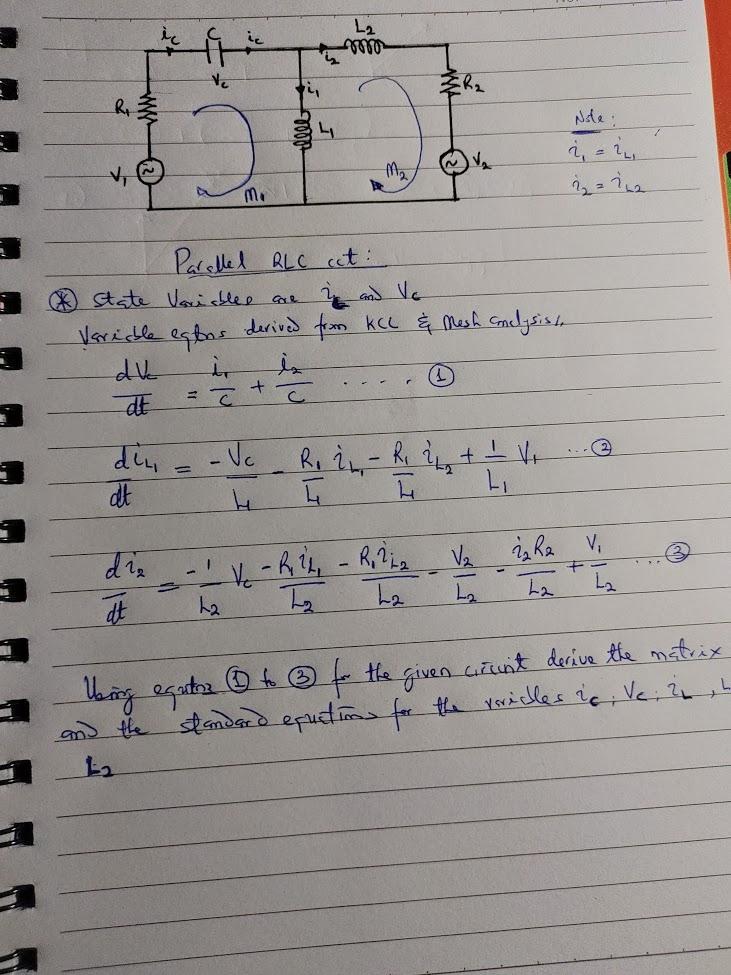 i_c C i_c L₂
i₂
V_c
i₁
R₁ L₁ R₂
V₁ M₁ M₂ V₂
Note:
i₁ = i_L₁
i₂ = i_L2
Parallel RLC cct:
* State Variables are i_L and V_c
Variable eqtns derived from KCL & Mesh analysis.
dV_c/dt = i₁/C + i₂/C .... ①
di_L₁/dt = -V_c/L₁ - R₁/L₁ i_L₁ - R₁/L₁ i_L₂ + 1/L₁ V₁ ...②
di₂/dt = -1/L₂ V_c - R₁i_L₁/L₂ - R₁i_L₂/L₂ - V₂/L₂ - i₂R₂/L₂ + V₁/L₂ ...③
Using equtns ① to ③ for the given circuit derive the matrix
and the standard equations for the variables i_c, V_c, i_L, L
L₂